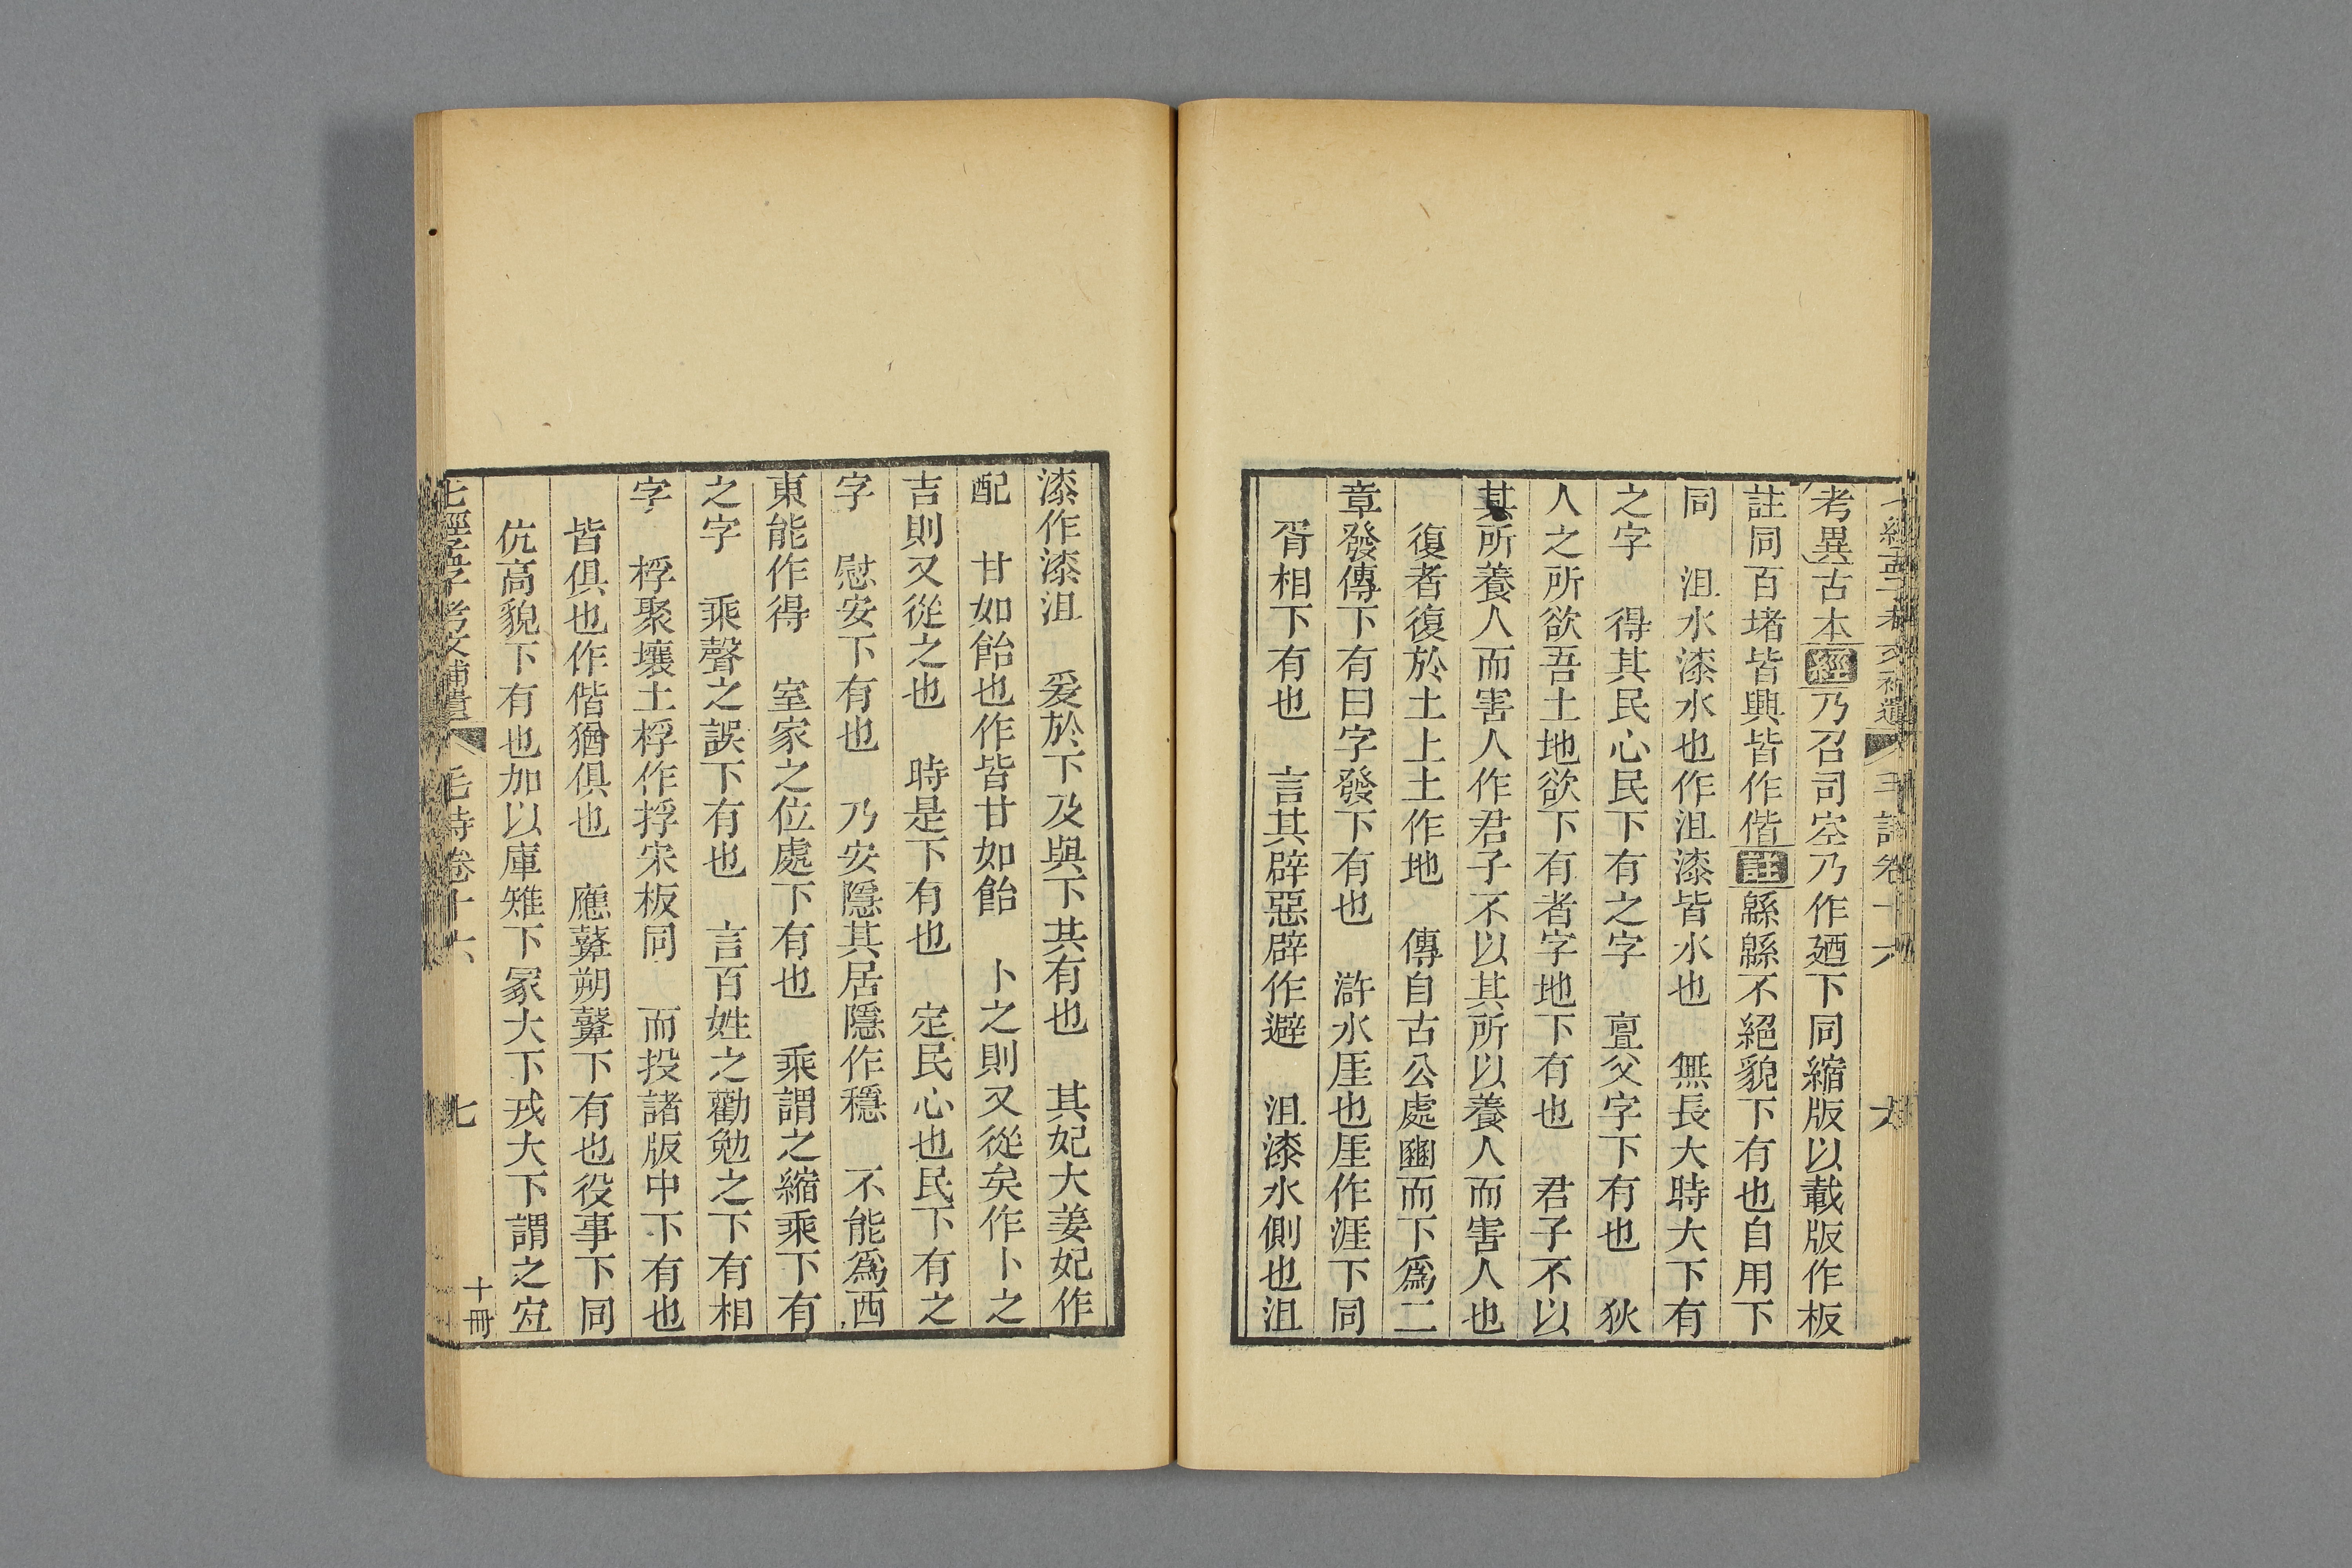 考異古本經乃召司空乃作廼下同縮版以載版作板
註同百堵皆興皆作偕註緜緜不絕貌下有也自用下
同　沮水漆水也作沮漆皆水也　無長大時大下有
之字　得其民心民下有之字　亶父字下有也　狄
人之所欲吾土地欲下有者字地下有也　君子不以
其所養人而害人作君子不以其所以養人而害人也
復者復於土上土作地　傳自古公處豳而下爲二
章發傳下有曰字發下有也　滸水厓也厓作涯下同
胥相下有也　言其辟惡辟作避　沮漆水側也沮
漆作漆沮　爰於下及與下共有也　其妃大姜妃作
配　甘如飴也作皆甘如飴　卜之則又從矣作卜之
吉則又從之也　時是下有也　定民心也民下有之
字　慰安下有也　乃安隱其居隱作穩　不能爲西
東能作得　室家之位處下有也　乘謂之縮乘下有
之字　乘聲之誤下有也　言百姓之勸勉之下有相
字　桴聚壤土桴作捊宋板同　而投諸版中下有也
皆俱也作偕猶俱也　應鼛朔鼛下有也役事下同
伉高貌下有也加以庫雉下冢大下戎大下謂之宜
七經孟子考文補遺　毛詩卷十六　七　十冊